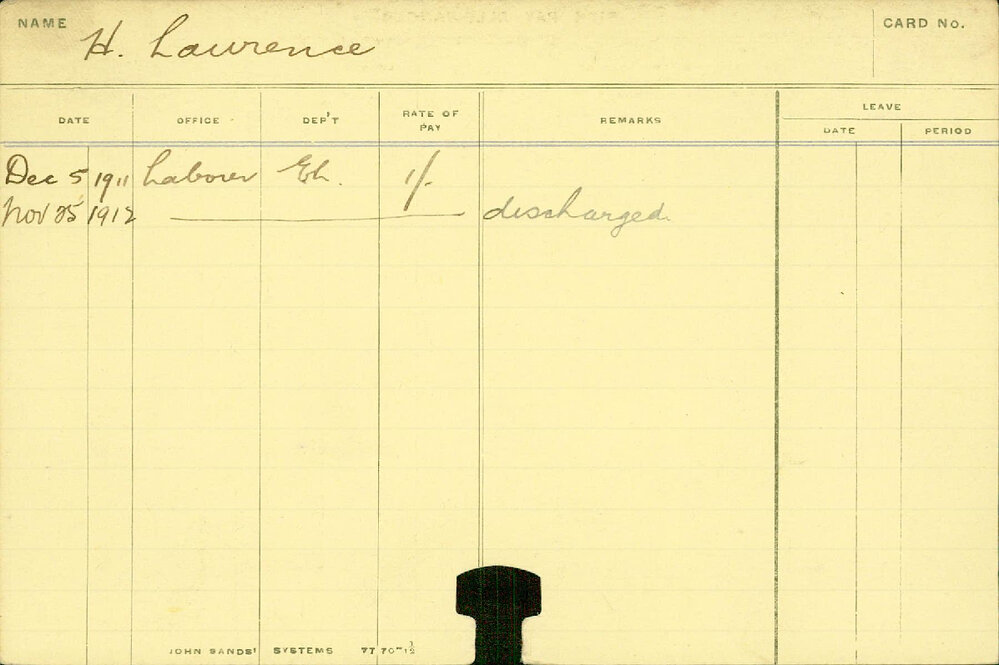 NAME H. Lawrence CARD No.
DATE OFFICE DEP'T RATE OF PAY REMARKS LEAVE
DATE PERIOD
Dec 5 1911 Laborer Eh. 1/-
Nov 25 1912 discharged.
JOHN SANDS' SYSTEMS